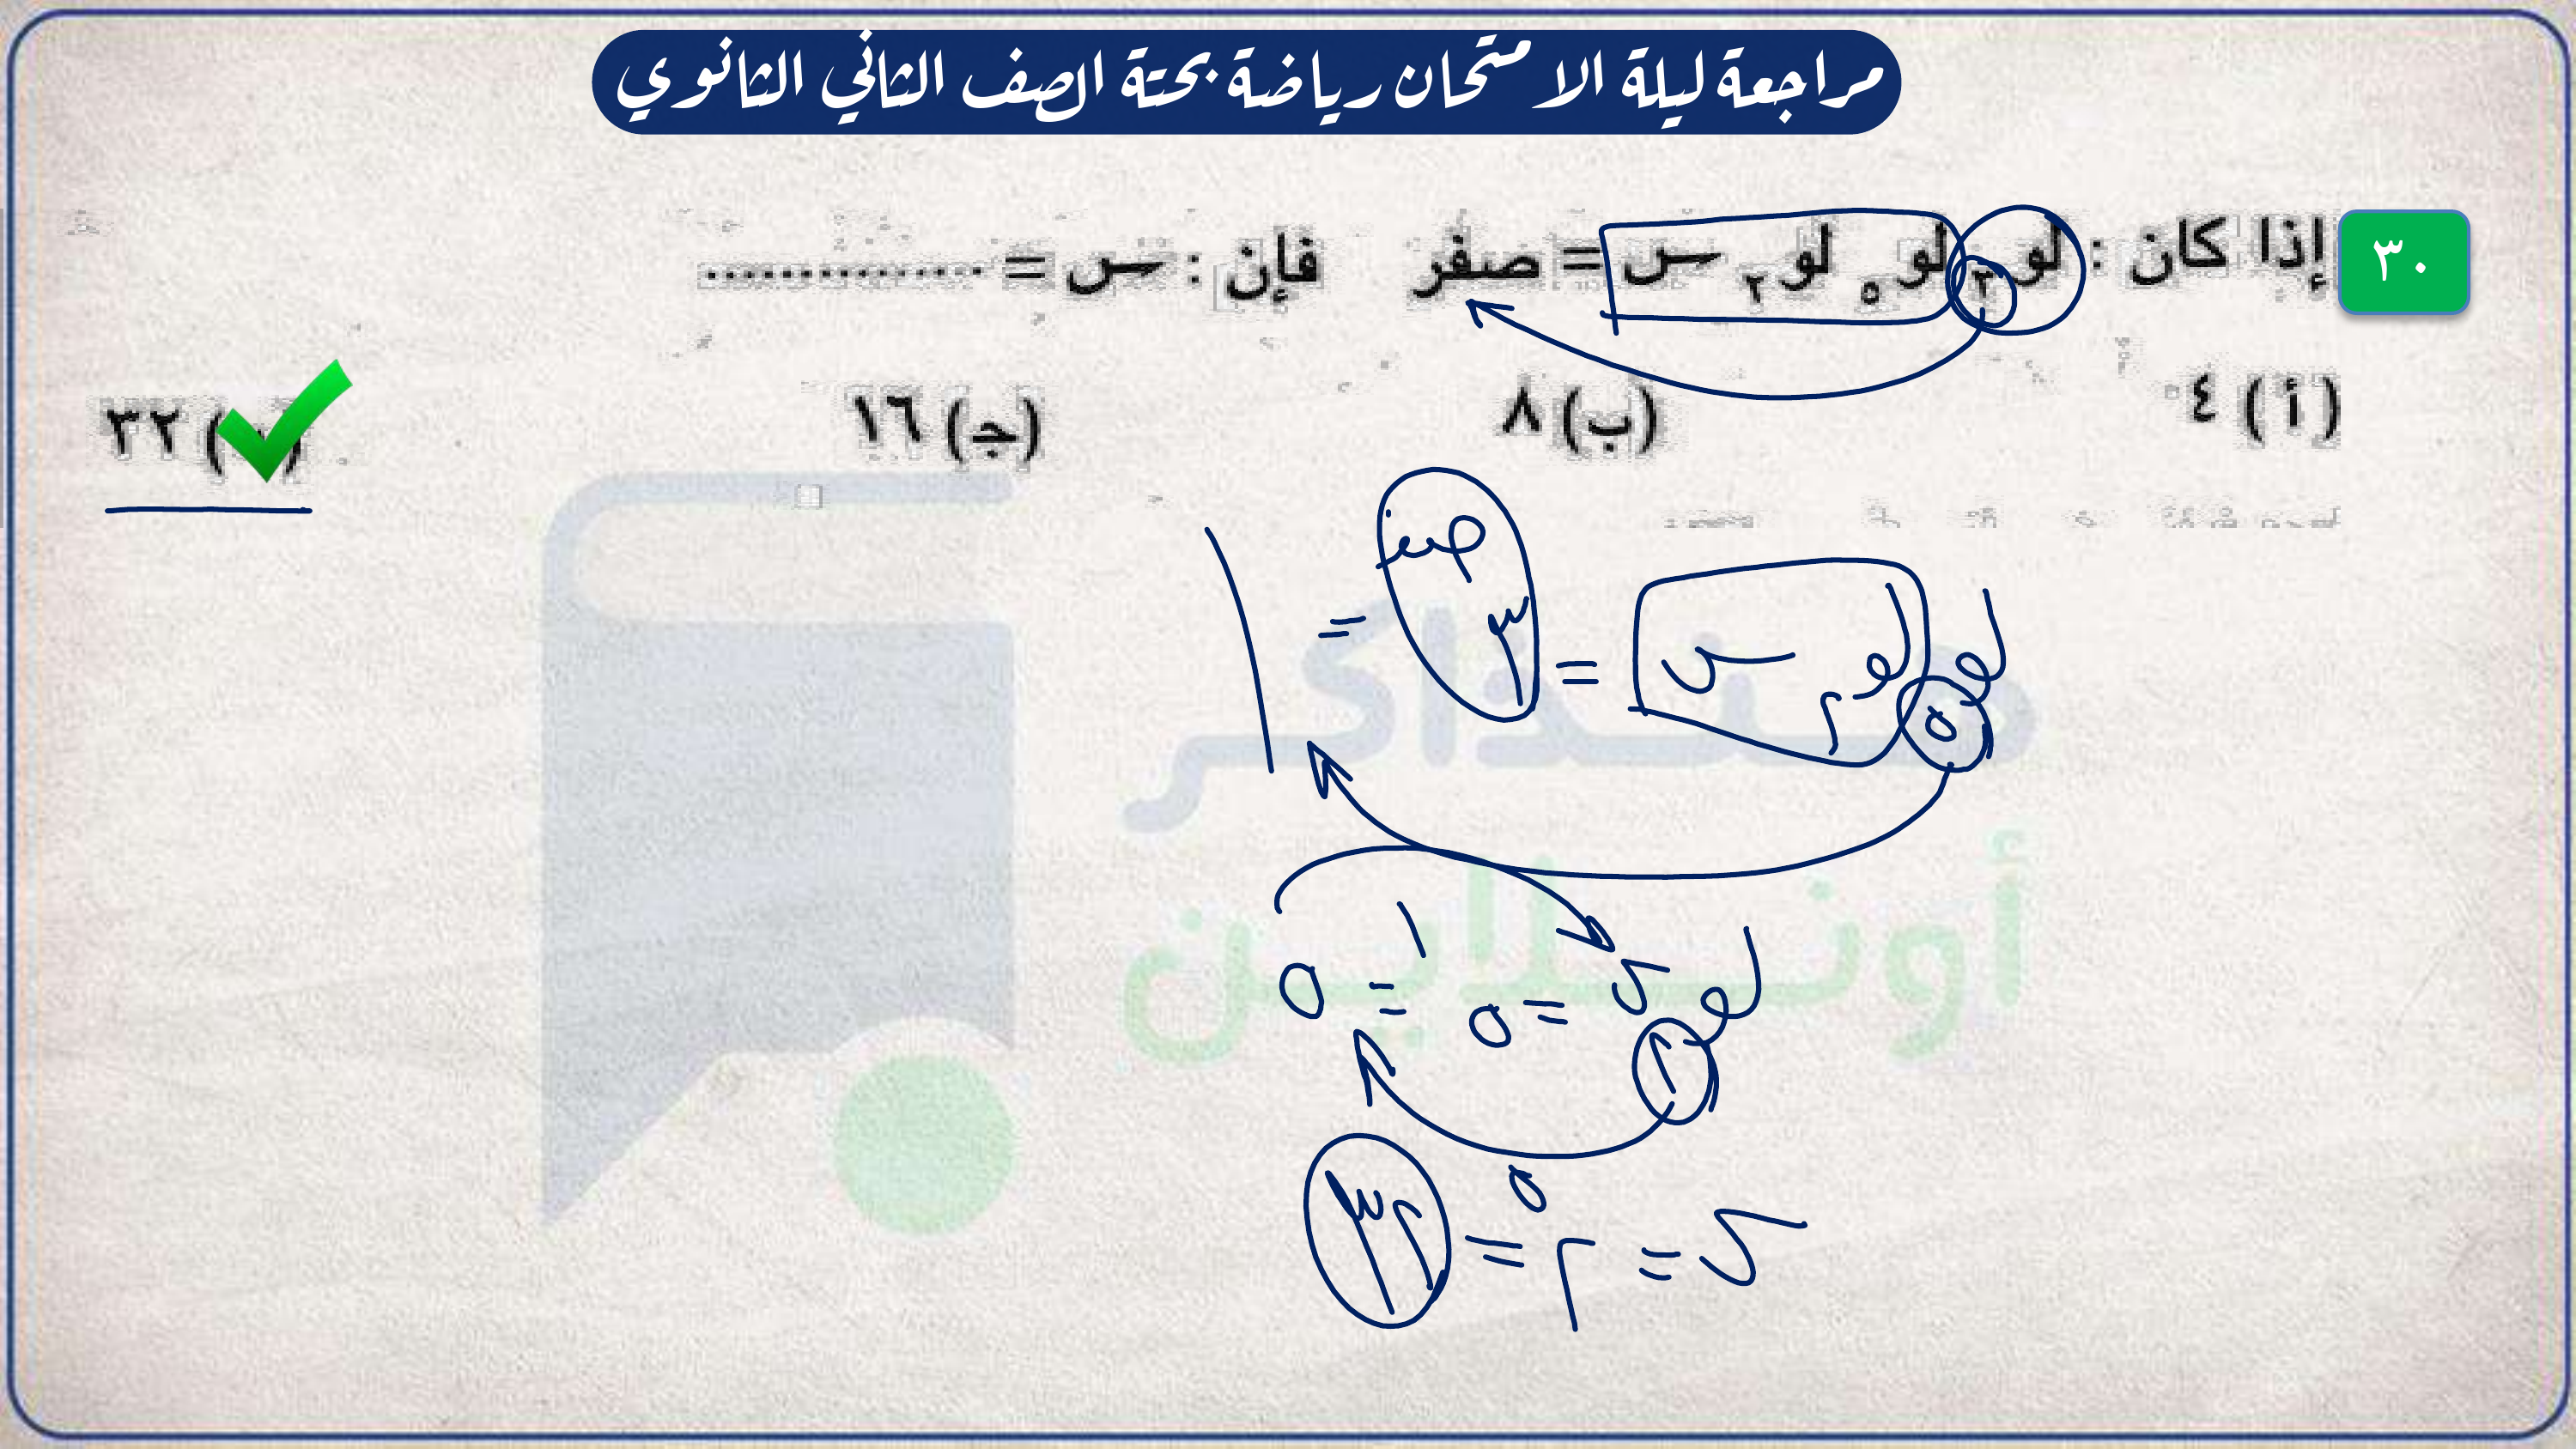 مراجعة ليلة الامتحان رياضة بحتة الصف الثاني الثانوي
٣٠ إذا كان : لو٣ لو٥ لو٢ س = صفر فإن : س = ...............
(أ) ٤ (ب) ٨ (ج) ١٦ ) ٣٢
لو٥ لو٢ س = ٣صفر = ١
لو٢ س = ٥١ = ٥
س = ٢٥ = ٣٢
مذاكر
أونلاين